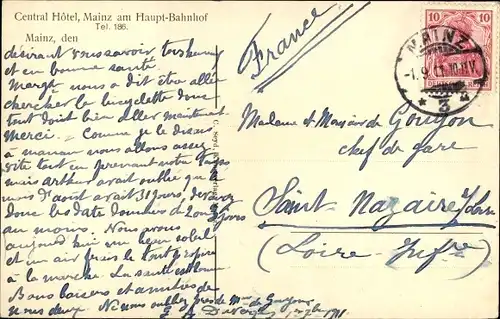 Central Hôtel, Mainz am Haupt-Bahnhof
Tel. 186.
Mainz, den
désirant savoir toujours
et en bonne santé
Margt nous a dit être allée
chercher la bicyclette donc
tout doit bien aller maintenant
Merci. Comme je le disais
à maman nous allons assez
vite tout en prenant notre temps
mais Arthur avait oublié que le
mois d'août avait 31 jours,
donc les date données de 2 ou 3
jours
au moins. Nous avons
aujourd'hui un beau soleil
et un air frais le tout propice
à la marche. La santé est bonne
Bons baisers et amitiés de
nous deux. Ne nous oubliez près de Mme de
France
10 10
MAINZ
-1.9.11. 10-11V.
* 3 *
Madame et Monsieur de
chef de gare
Saint Nazaire s/Loire
(Loire Infre)